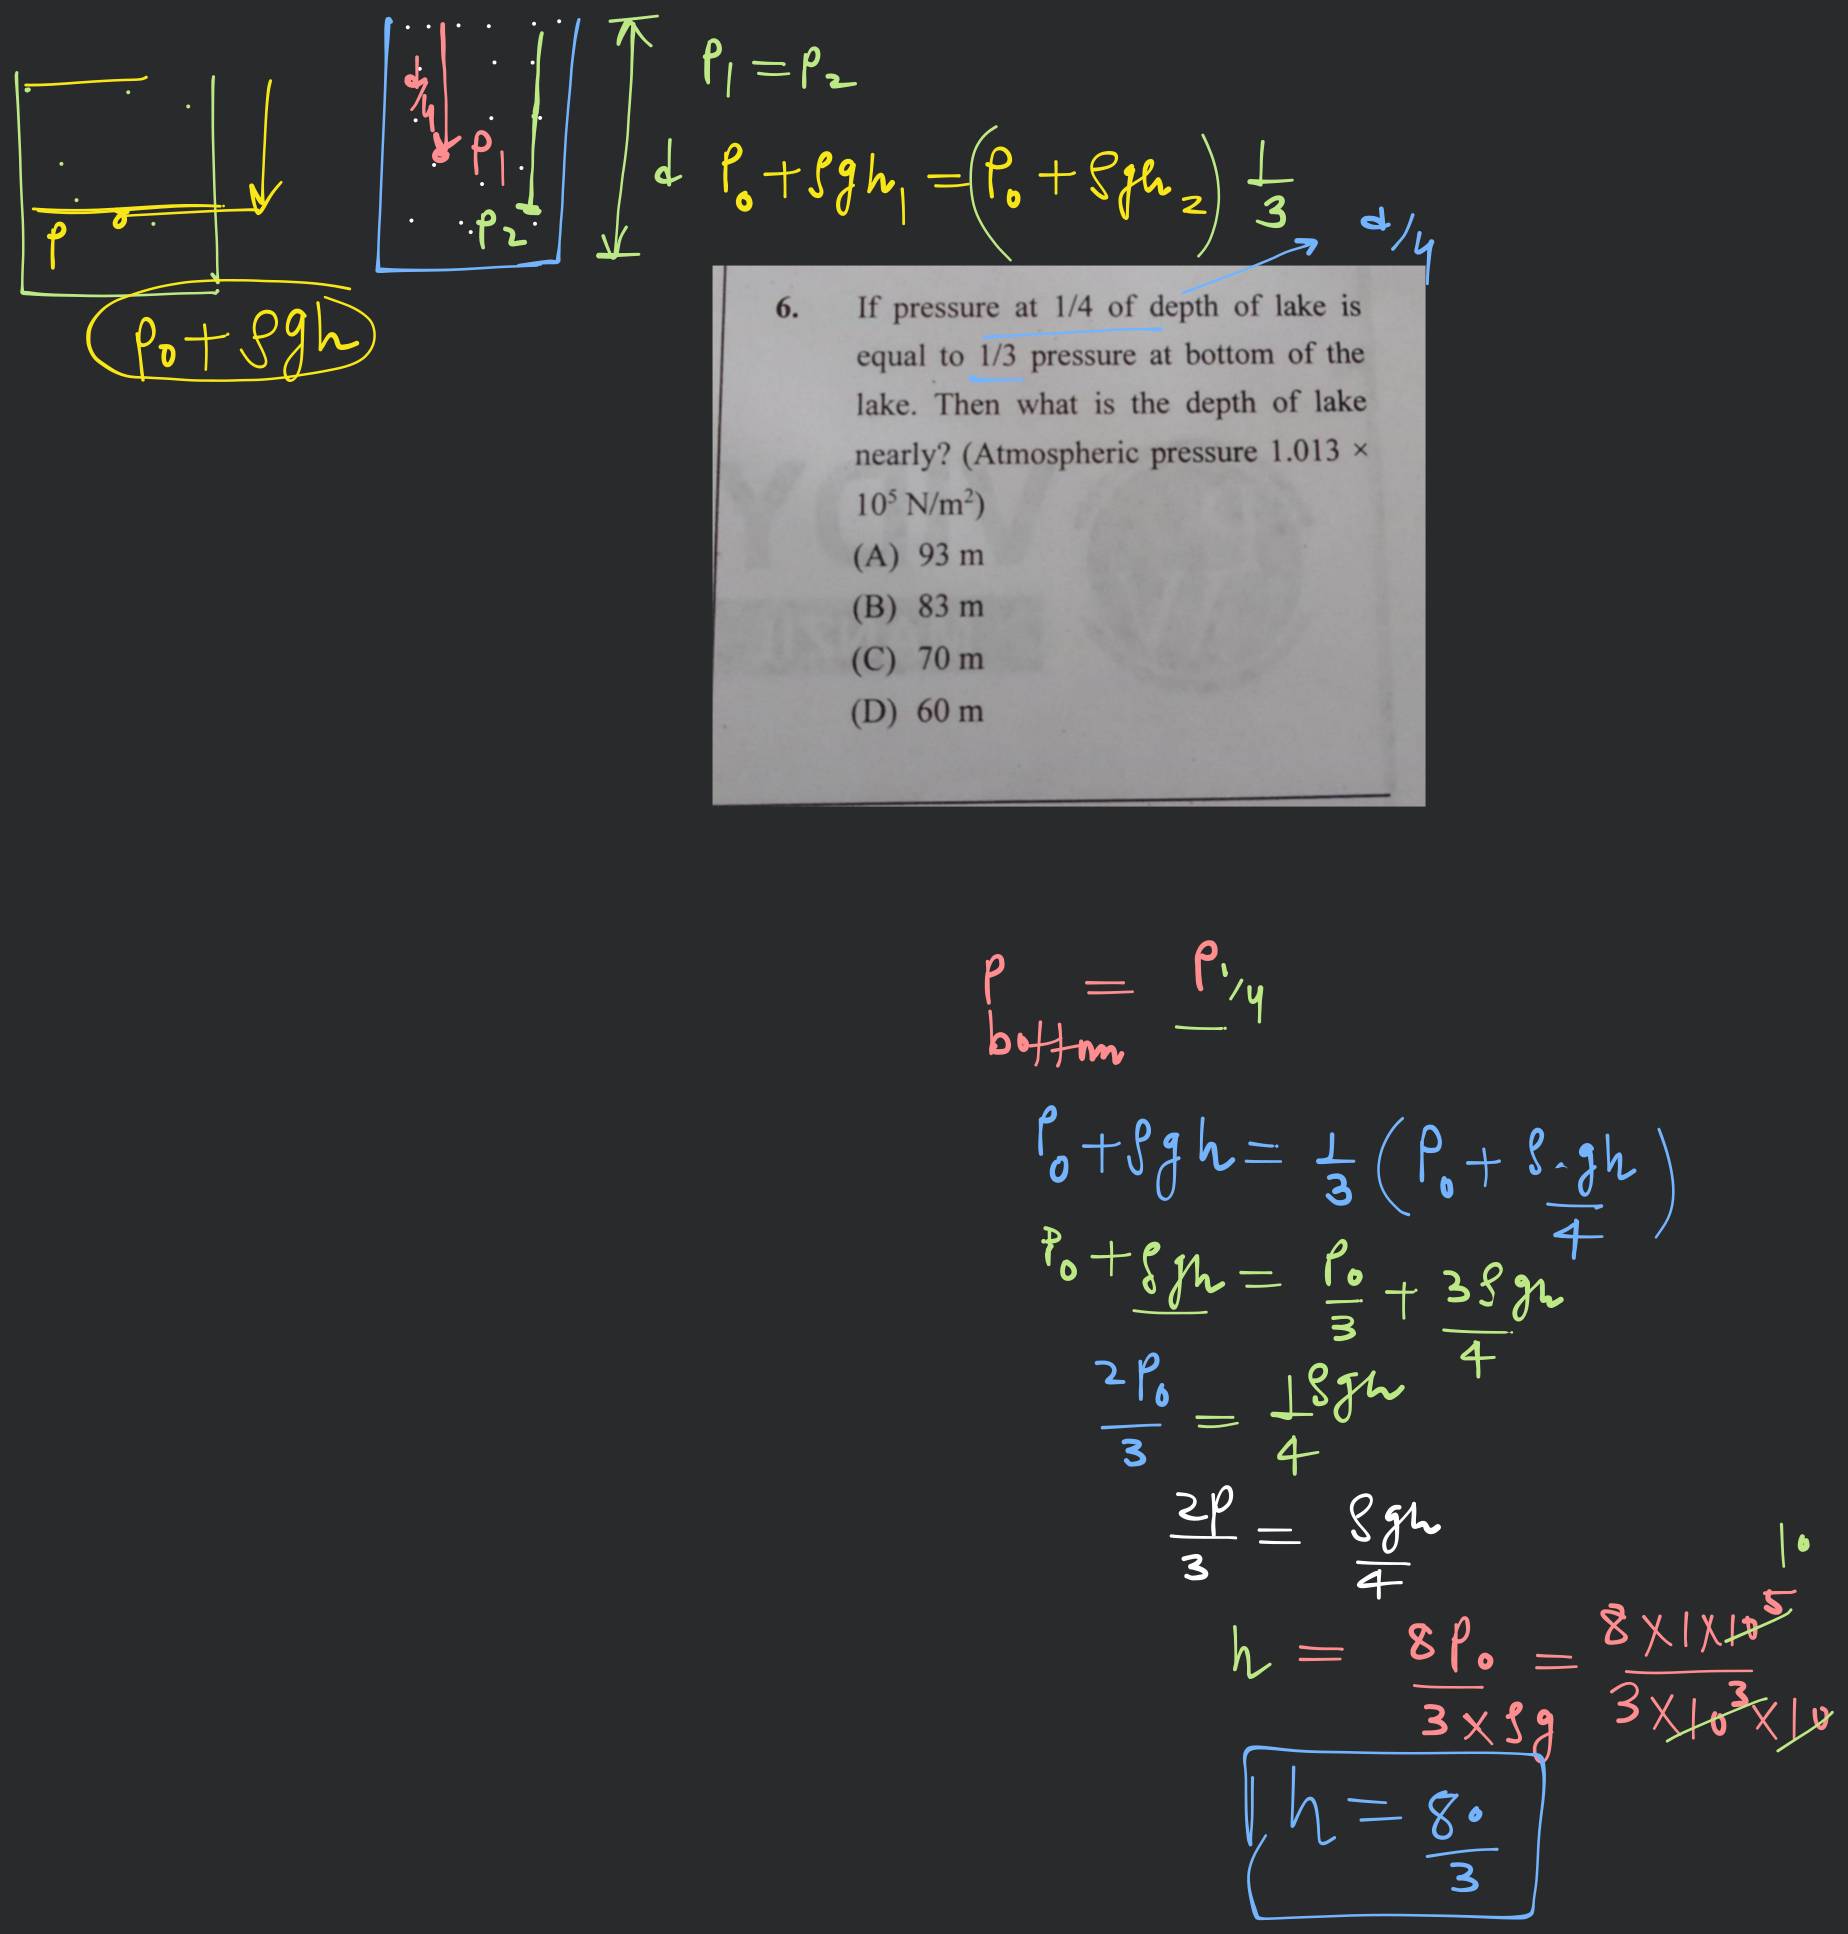 P₁ = P₂
d/4
P₁
P₂
d
P₀ + ρgh₁ = (P₀ + ρgh₂) 1/3
d/4
P
P₀ + ρgh
6. If pressure at 1/4 of depth of lake is
equal to 1/3 pressure at bottom of the
lake. Then what is the depth of lake
nearly? (Atmospheric pressure 1.013 ×
10⁵ N/m²)
(A) 93 m
(B) 83 m
(C) 70 m
(D) 60 m
P bottom = P 1/4
P₀ + ρgh = 1/3 (P₀ + ρ·gh/4)
P₀ + ρgh = P₀/3 + 3ρgh/4
2P₀/3 = 1/4 ρgh
2P/3 = ρgh/4
10
h = 8P₀/3×ρg = 8×1×10⁵/3×10³×10
h = 80/3